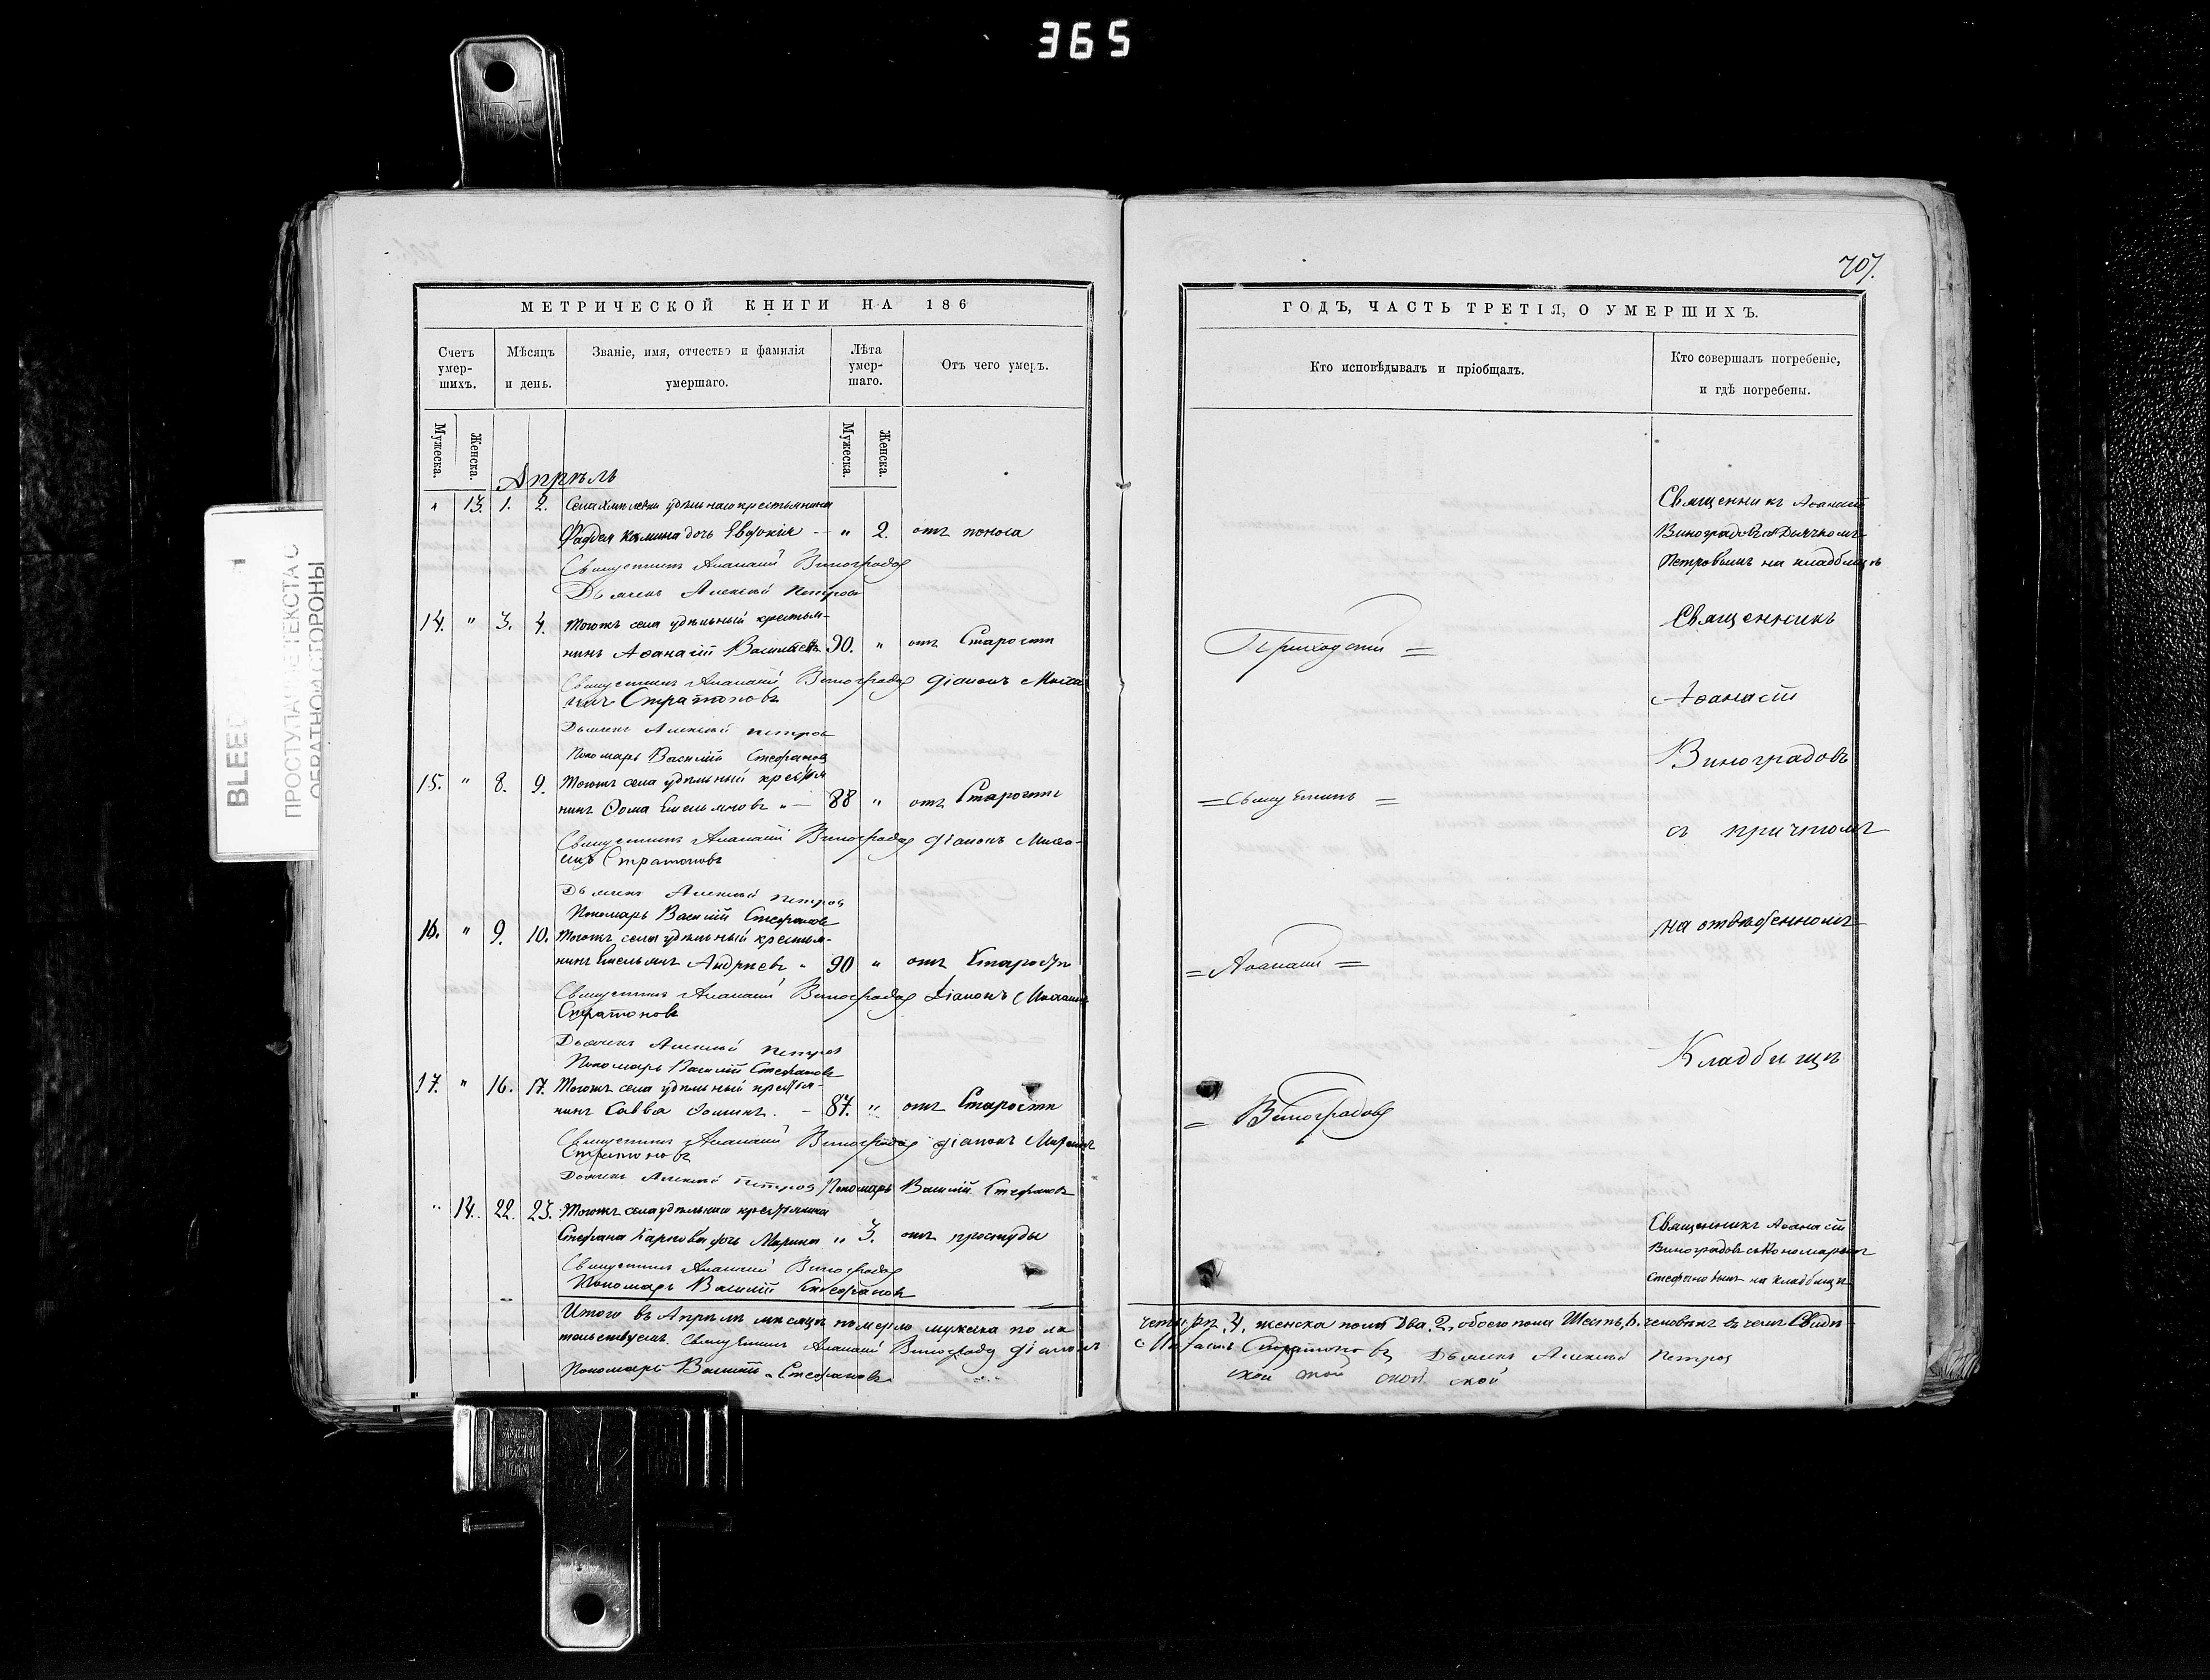 365
707.
BLEED
ПРОСТУПАНИЕ ТЕКСТА С
ОБРАТНОЙ СТОРОНЫ
МЕТРИЧЕСКОЙ КНИГИ НА 186
Счетъ умер- шихъ.
Мѣсяцъ и день.
Званіе, имя, отчество и фамилія умершаго.
Лѣта умер- шаго.
Отъ чего умеръ.
Мужеска. Женска. Мужеска. Женска.
Апрѣль
" 13. 1. 2. Села удѣльнаго крестьянина
Фаддея дочь Евдокія — " 2. отъ поноса
Священникъ Аѳанасій Виноградов
Дьячекъ Алексѣй Петров
14. " 3. 4. Тогожъ села удѣльный крестья-
нинъ Аѳанасій Васильевъ 90. " отъ Старости
Священникъ Аѳанасій Виноградов діаконъ Миха
илъ Стратоновъ
Дьячекъ Алексѣй Петров
Пономарь Василій Стефанов
15. " 8. 9. Тогожъ села удѣльный крестья
нинъ Ѳома Емельяновъ " — 88 " отъ Старости
Священникъ Аѳанасій Виноградов діаконъ Миха-
илъ Стратоновъ
Дьячекъ Алексѣй Петров
Пономарь Василій Стефанов
16. " 9. 10. Тогожъ села удѣльный крестья-
нинъ Емельянъ Андреевъ " 90 " отъ Старости
Священникъ Аѳанасій Виноградов Діаконъ Михаилъ
Стратоновъ
Дьячекъ Алексѣй Петров
Пономарь Василій Стефановъ
17. " 16. 17. Тогожъ села удѣльный крестья-
нинъ Савва Ѳоминъ. — 87. " отъ Старости
Священникъ Аѳанасій Виноградов діаконъ Михаилъ
Стратоновъ
Дьячекъ Алексѣй Петров Пономарь Василій Стефановъ
" 14. 22. 23. Тогожъ села удѣльнаго крестьянина
Стефана Карпова дочь Марина " 3. отъ простуды
Священникъ Аѳанасій Виноградов
Пономарь Василій Стефановъ
Итого въ Апрѣлѣ мѣсяцѣ померло мужеска пола
тельствуемъ. Священникъ Аѳанасій Виноградов діаконъ
Пономарь Василій Стефановъ
ГОДЪ, ЧАСТЬ ТРЕТІЯ, О УМЕРШИХЪ.
Кто исповѣдывалъ и пріобщалъ.
Кто совершалъ погребеніе, и гдѣ погребены.
Священникъ Аѳанасій
Виноградовъ съ Дьячкомъ
Петровымъ на кладбищѣ
Священникъ
Приходскій =
Аѳанасій
Виноградовъ
= Священникъ =
съ причтомъ
на отведенномъ
= Аѳанасій =
Кладбищѣ
= Виноградов
Священникъ Аѳанасій
Виноградовъ съ Пономаремъ
Стефановымъ на кладбищѣ
четыре, 4, женска пола Два, 2, обоего пола Шесть, 6. человѣкъ въ чемъ Свидѣ-
Михаилъ Стратоновъ Дьячекъ Алексѣй Петров